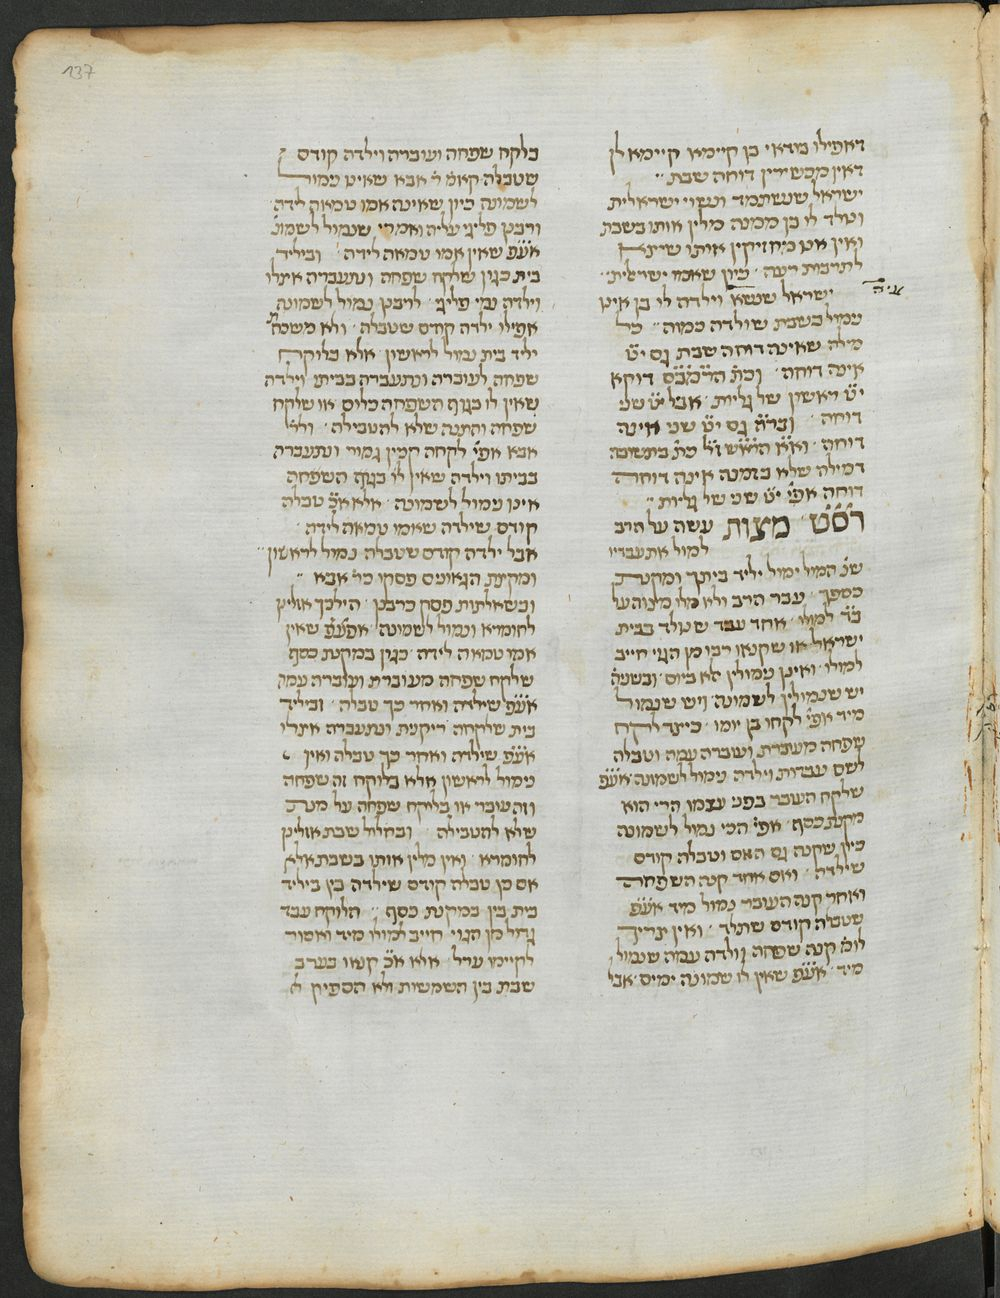 137
דאפילו מודאי בן קיימא קיימא לן
דאין מכשירין דוחה שבת
ישראל שנשתמד ונשוי ישראלית
ונולד לו בן ממנה מלין אותו בשבת
ואין אנו מחזיקין אותו שיצא
לתרבות רעה כיון שאמו ישרלית
ישראל שנשא וילדה לו בן אינו
נמול בשבת שולדה כמוה כל
מילה שאינה דוחה שבת גם י״ט
אינה דוחה וכת׳ הרמב״ם דוקא
י״ט ראשון של גליות אבל י״ט שני
דוחה גם י״ט שני אינה
דוחה הרא״ש ז״ל כת׳ בתשובה
דמילה שלא בזמנה אינה דוחה
דוחה אפי׳ י״ט שני של גליות
רס״ט מצות עשה על הרב
למול את עבדיו
שנ׳ המול ימול יליד ביתך ומקנת
כספך עבר הרב ולא מלו מצוה על
ב״ד למולו אחד עבד שנולד בבית
ישראל או שקנאו רבו מן הגוי חייב
למולו ואינן נמולין אלא ביום
יש שנמולין לשמונה ויש שנמול
מיד אפי׳ לקחו בן יומו כיצד לקח
שפחה מעוברת ועוברה עמה וטבלה
לשם עבדות וילדה נמול לשמונה אע״פ
שלקח העובר בפני עצמו הרי הוא
מקנת כסף אפי׳ הכי נמול לשמונה
כיון שקנה גם האם וטבלה קודם
שילדה ואם אחד קנה השפחה
ואחר קנה העובר נמול מיד אע״פ
שטבלה קודם שתלד ואין צריך
לומ׳ קנה שפחה וולדה עמה שנמול
מיד אע״פ שאין לו שמונה ימים אבל
בלקח שפחה ועוברה וילדה קודם
שטבלה קאמ׳ ר׳ אבא שאינו נמול
לשמונה כיון שאינה אמו טמאה לידה
ורבנן פליגי עליה ואמרי שנמול לשמונ׳
אע״פ שאין אמו טמאה לידה וביליד
בית כגון שלקח שפחה ונתעברה אצלו
וילדה נמי פליגי לרבנן נמול לשמונה
אפילו ילדה קודם שטבלה ולא משכח׳
יליד בית נמול לראשון אלא בלוקח
שפחה לעוברה ונתעברה בביתו וילדה
שאין לו בגוף השפחה כלום או שלקח
שפחה והתנה שלא להטבילה ולר׳
אבא אפי׳ לקחה קנין גמור ונתעברה
בביתו וילדה שאין לו בגוף השפחה
אינו נמול לשמונה אלא א״כ טבלה
קודם שילדה שאמו טמאה לידה
אבל ילדה קודם שטבלה נמול לראשון
ומקצת הגאונים פסקו כר׳ אבא
ובשאלתות פסק כרבנן הילכך אזלינן
לחומרא ונמול לשמונה אע״פ שאין
אמו טמאה לידה כגון במקנת כסף
שלקח שפחה מעוברת ועוברה עמה
אע״פ שילדה ואחר כך טבלה וביליד
בית שלקחה ריקנית ונתעברה אצלו
אע״פ שילדה ואחר כך טבלה ואין
נימול לראשון אלא בלוקח זה שפחה
וזה עובר או בלוקח שפחה על מנת
שלא להטבילה ובחלול שבת אזלינן
לחומרא ואין מלין אותו בשבת אלא
אם כן טבלה קודם שילדה בין ביליד
בית בין במקנת כסף הלוקח עבד
גדול מן הגוי חייב למולו מיד ואסור
לקיימו ערל אלא א״כ קנאו בערב
שבת בין השמשות ולא הספיק ל